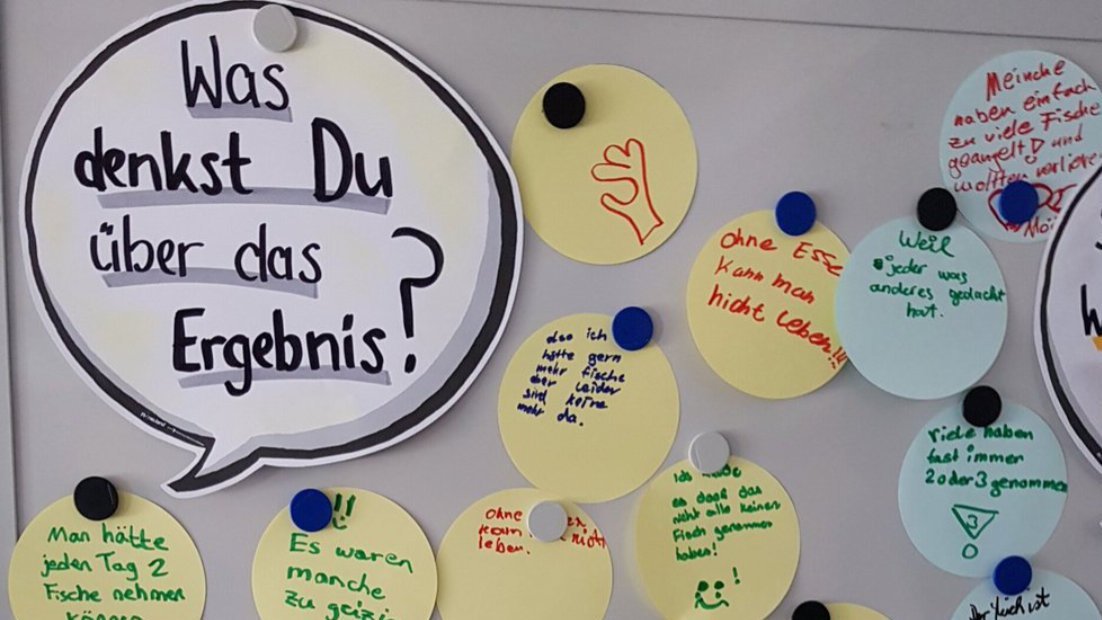 Was
denkst Du
über das
Ergebnis?
Meinche
haben einfach
zu viele Fische
geangelt! und
wollten
ohne Esse
kann man
nicht leben!!!
Weil
jeder was
anderes gedacht
hat.
also ich
hätte gern
mehr fische
aber leider
sind keine
mehr da.
Viele haben
fast immer
2 oder 3 genommen
3
Ich
es doof das
nicht alle keinen
Fisch genommen
haben!
!
ohne
kann nicht
leben.
Man hätte
jeden Tag 2
Fische nehmen
können
!!
Es waren
manche
zu geizig
ist